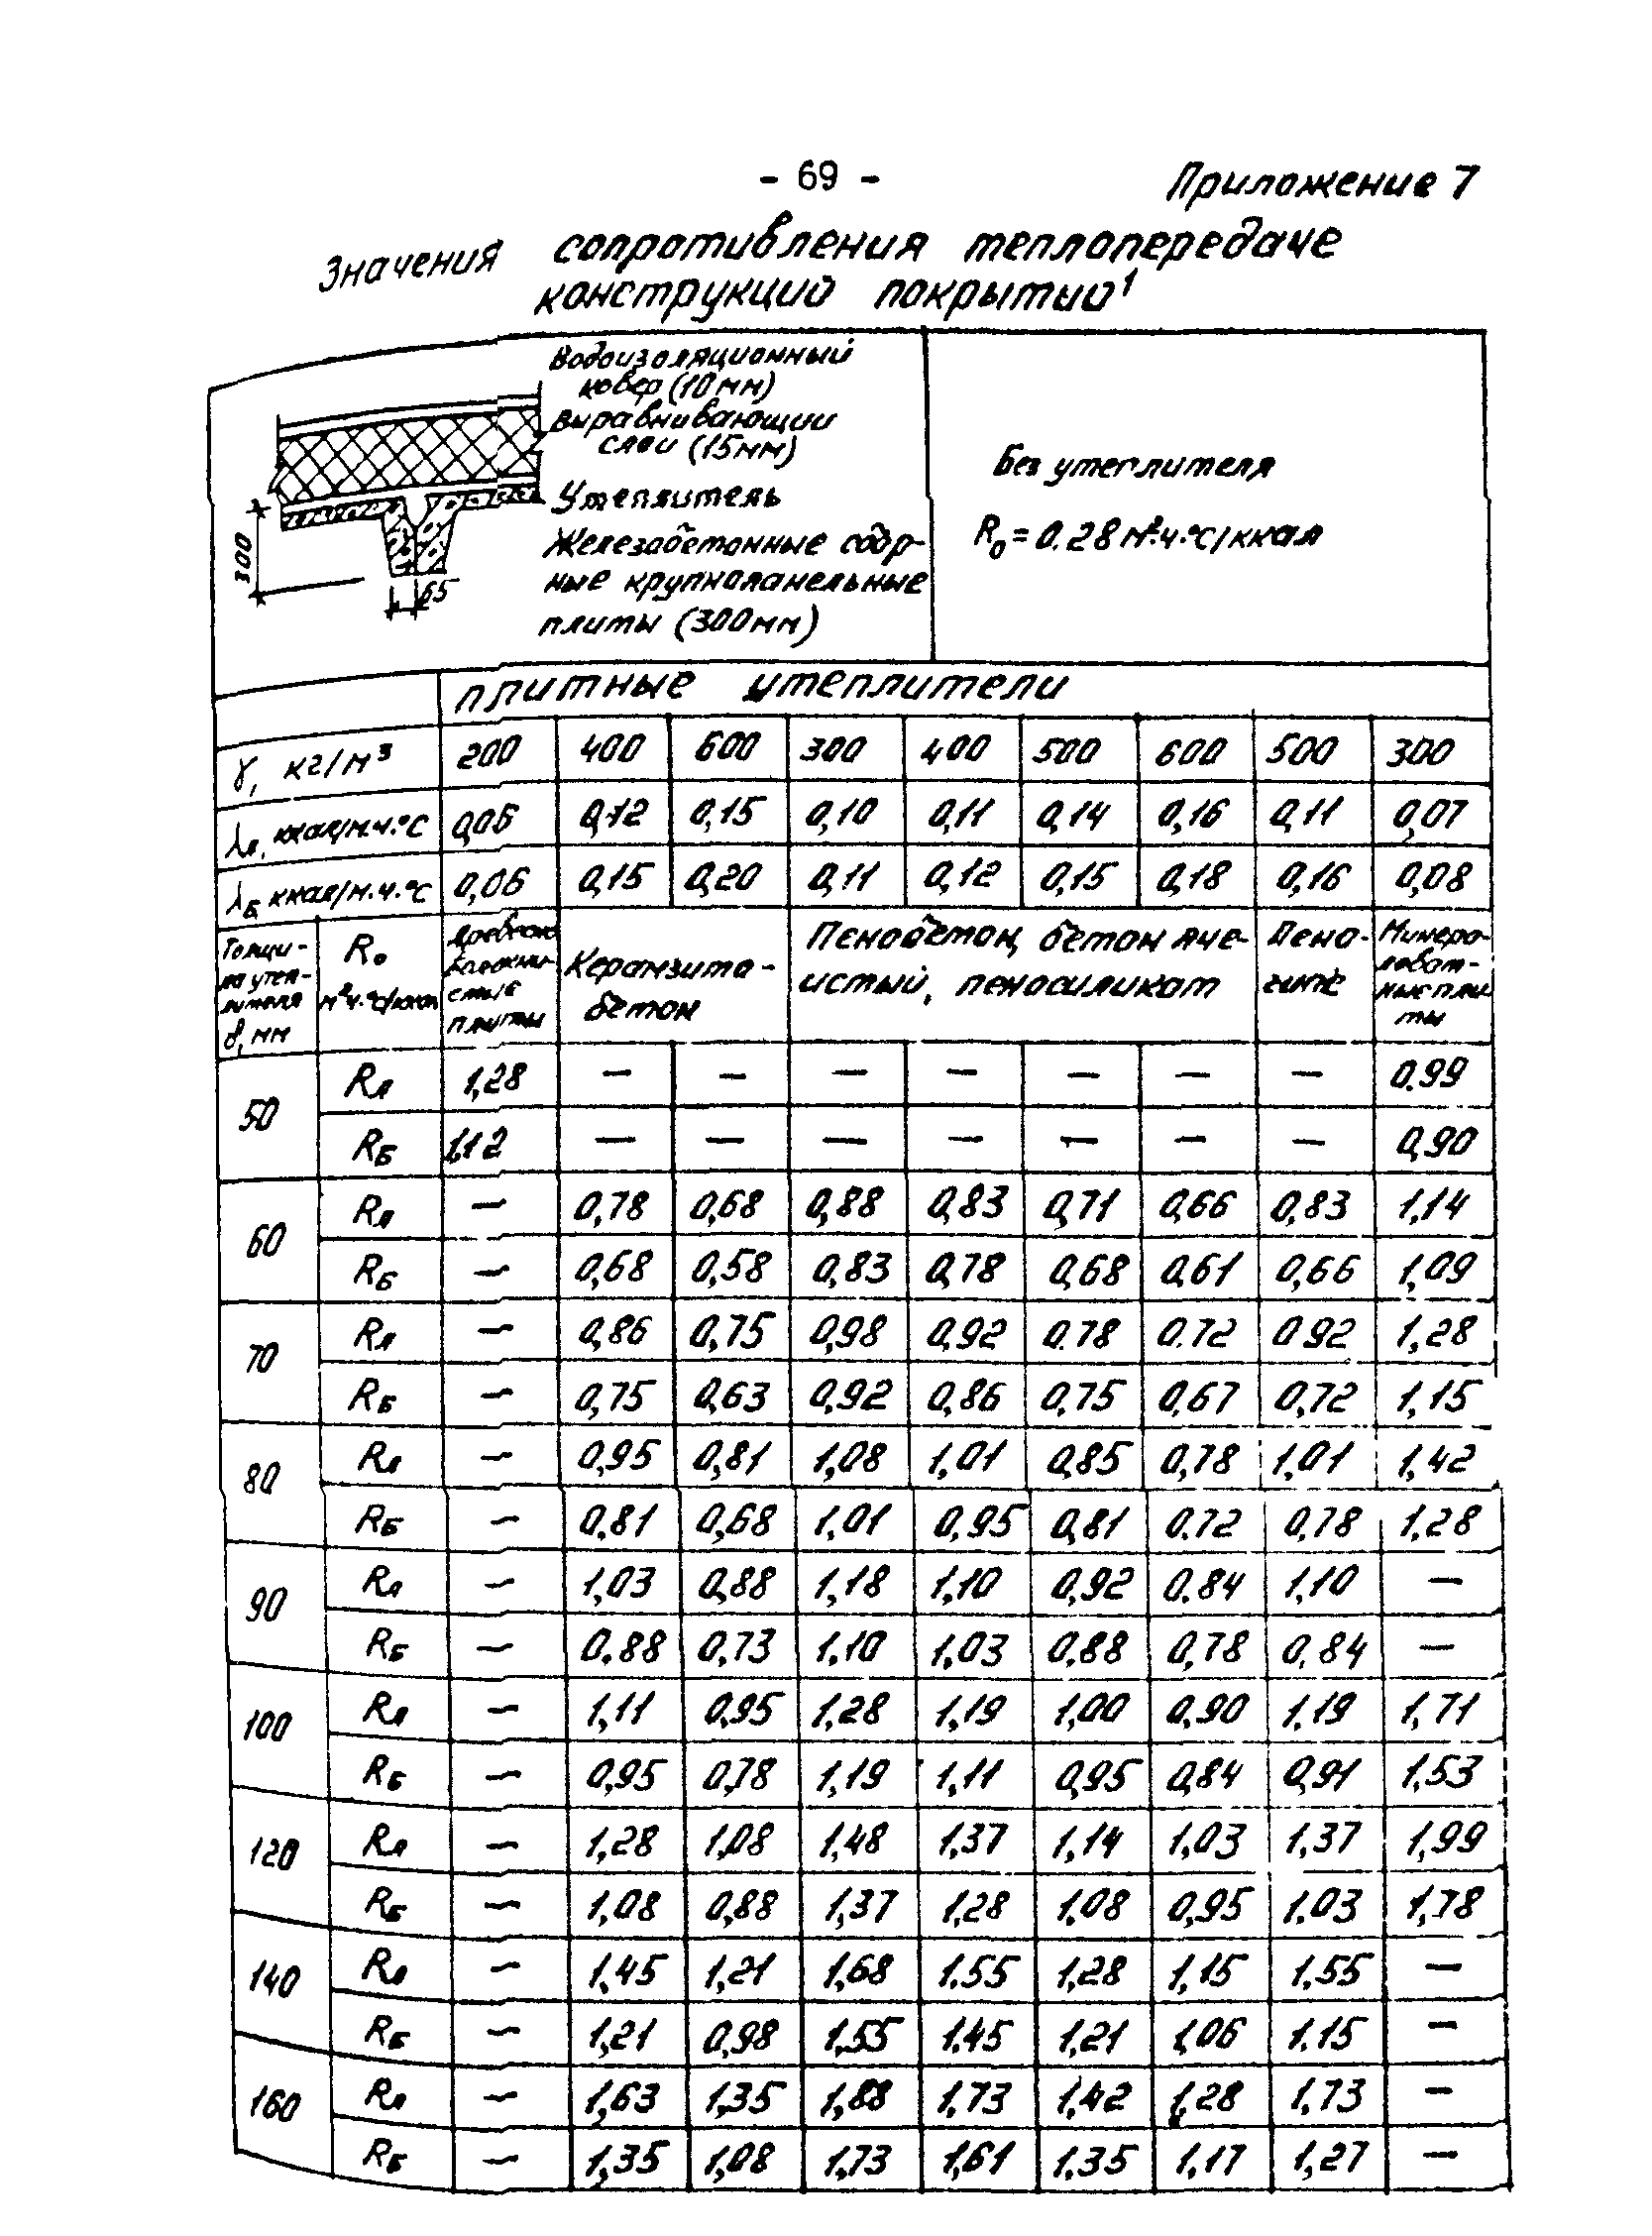 - 69 -
Приложение 7
Значения сопротивления теплопередаче
конструкций покрытий¹
Водоизоляционный
ковер (10 мм)
выравнивающий
слой (15 мм)
Утеплитель
Железобетонные сбор-
ные крупнопанельные
плиты (300 мм)
300
65
Без утеплителя
R₀ = 0.28 м²·ч·°С/ккал
плитные утеплители
γ, кг/м³ 200 400 600 300 400 500 600 500 300
λА, ккал/м.ч.°С 0,06 0,12 0,15 0,10 0,11 0,14 0,16 0,11 0,07
λБ ккал/м.ч.°С 0,06 0,15 0,20 0,11 0,12 0,15 0,18 0,16 0,08
Толщи-
на утеп-
лителя
δ, мм
R₀
м²ч.°С/ккал
плиты
Керамзито-
бетон
Пенобетон, бетон яче-
истый, пеносиликат
Минера-
ловат-
ные пли
ты
50 RА 1,28 — — — — — — — 0.99
RБ 1,12 — — — — — — — 0,90
60 RА — 0,78 0,68 0,88 0,83 0,71 0,66 0,83 1,14
RБ — 0,68 0,58 0,83 0,78 0,68 0,61 0,66 1,09
70 RА — 0,86 0,75 0,98 0,92 0.78 0.72 0 92 1,28
RБ — 0,75 0,63 0,92 0,86 0,75 0,67 0,72 1,15
80 RА — 0,95 0,81 1,08 1,01 0,85 0,78 1,01 1,42
RБ — 0,81 0,68 1,01 0,95 0,81 0.72 0,78 1.28
90 RА — 1,03 0,88 1,18 1,10 0,92 0.84 1,10 —
RБ — 0.88 0,73 1,10 1,03 0,88 0,78 0,84 —
100 RА — 1,11 0,95 1,28 1,19 1,00 0,90 1,19 1,71
RБ — 0,95 0,78 1,19 1,11 0,95 0,84 0,91 1,53
120 RА — 1,28 1,08 1,48 1,37 1,14 1,03 1,37 1,99
RБ — 1,08 0,88 1,37 1,28 1,08 0,95 1.03 1,78
140 RА — 1,45 1,21 1,68 1.55 1,28 1,15 1,55 —
RБ — 1,21 0,98 1,55 1.45 1,21 1,06 1.15 —
160 RА — 1,63 1,35 1,88 1,73 1,42 1,28 1,73 —
RБ — 1,35 1,08 1,73 1,61 1.35 1,17 1,27 —